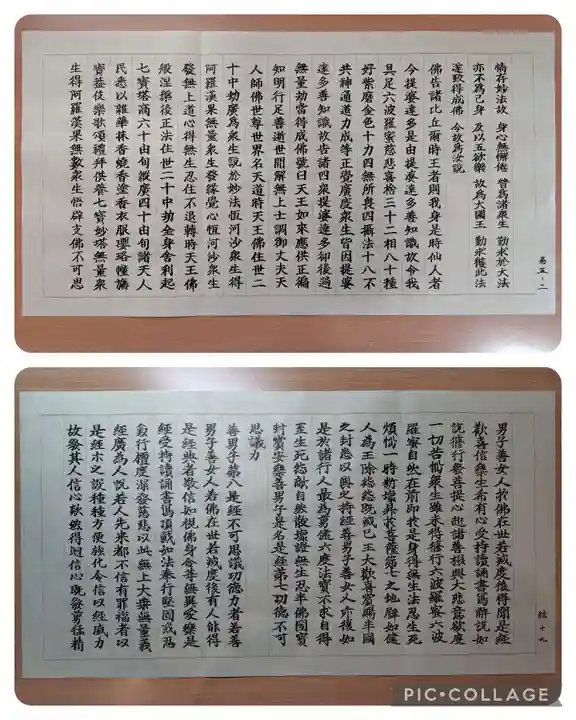 卷五、二
情存妙法故 身心無懈倦 普為諸衆生 勤求於大法
亦不為己身 及以五欲樂 故為大國王 勤求獲此法
遂致得成佛 今故為汝說
佛告諸比丘爾時王者則我身是時仙人者
今提婆達多是由提婆達多善知識故令我
具足六波羅蜜慈悲喜捨三十二相八十種
好紫磨金色十力四無所畏四攝法十八不
共神通道力成等正覺廣度衆生皆因提婆
達多善知識故告諸四衆提婆達多卻後過
無量劫當得成佛號曰天王如來應供正徧
知明行足善逝世間解無上士調御丈夫天
人師佛世尊世界名天道時天王佛住世二
十中劫廣為衆生說於妙法恆河沙衆生得
阿羅漢果無量衆生發緣覺心恆河沙衆生
發無上道心得無生忍住不退轉時天王佛
般涅槃後正法住世二十中劫全身舍利起
七寶塔高六十由旬縱廣四十由旬諸天人
民悉以雜華抹香燒香塗香衣服瓔珞幢旛
寶蓋伎樂歌頌禮拜供養七寶妙塔無量衆
生得阿羅漢果無數衆生悟辟支佛不可思
十九
男子善女人於佛在世若滅度後得聞是經
歡喜信樂生希有心受持讀誦書寫解說如
說修行發菩提心起諸善根興大悲意欲度
一切苦惱衆生雖未得修行六波羅蜜六波
羅蜜自然在前即於是身得無生法忍生死
煩惱一時斷壞昇於菩薩第七之地譬如健
人為王除怨怨既滅已王大歡喜賞賜半國
之封悉以與之持經善男子善女人亦復如
是於諸行人最為勇健六度法寶不求自得
至生死怨敵自然散壞證無生忍半佛國寶
封賞安樂善男子是名是經第七功德不可
思議力
善男子第八是經不可思議功德力者若善
男子善女人若佛在世若滅度後有人能得
是經典者敬信如視佛身令等無異愛樂是
經受持讀誦書寫頂戴如法奉行堅固戒忍
兼行檀度深發慈悲以此無上大乘無量義
經廣為人說若人先來都不信有罪福者以
是經示之設種種方便強化令信以經威力
故發其人信心欻然得迴信心既發勇猛精
PIC•COLLAGE